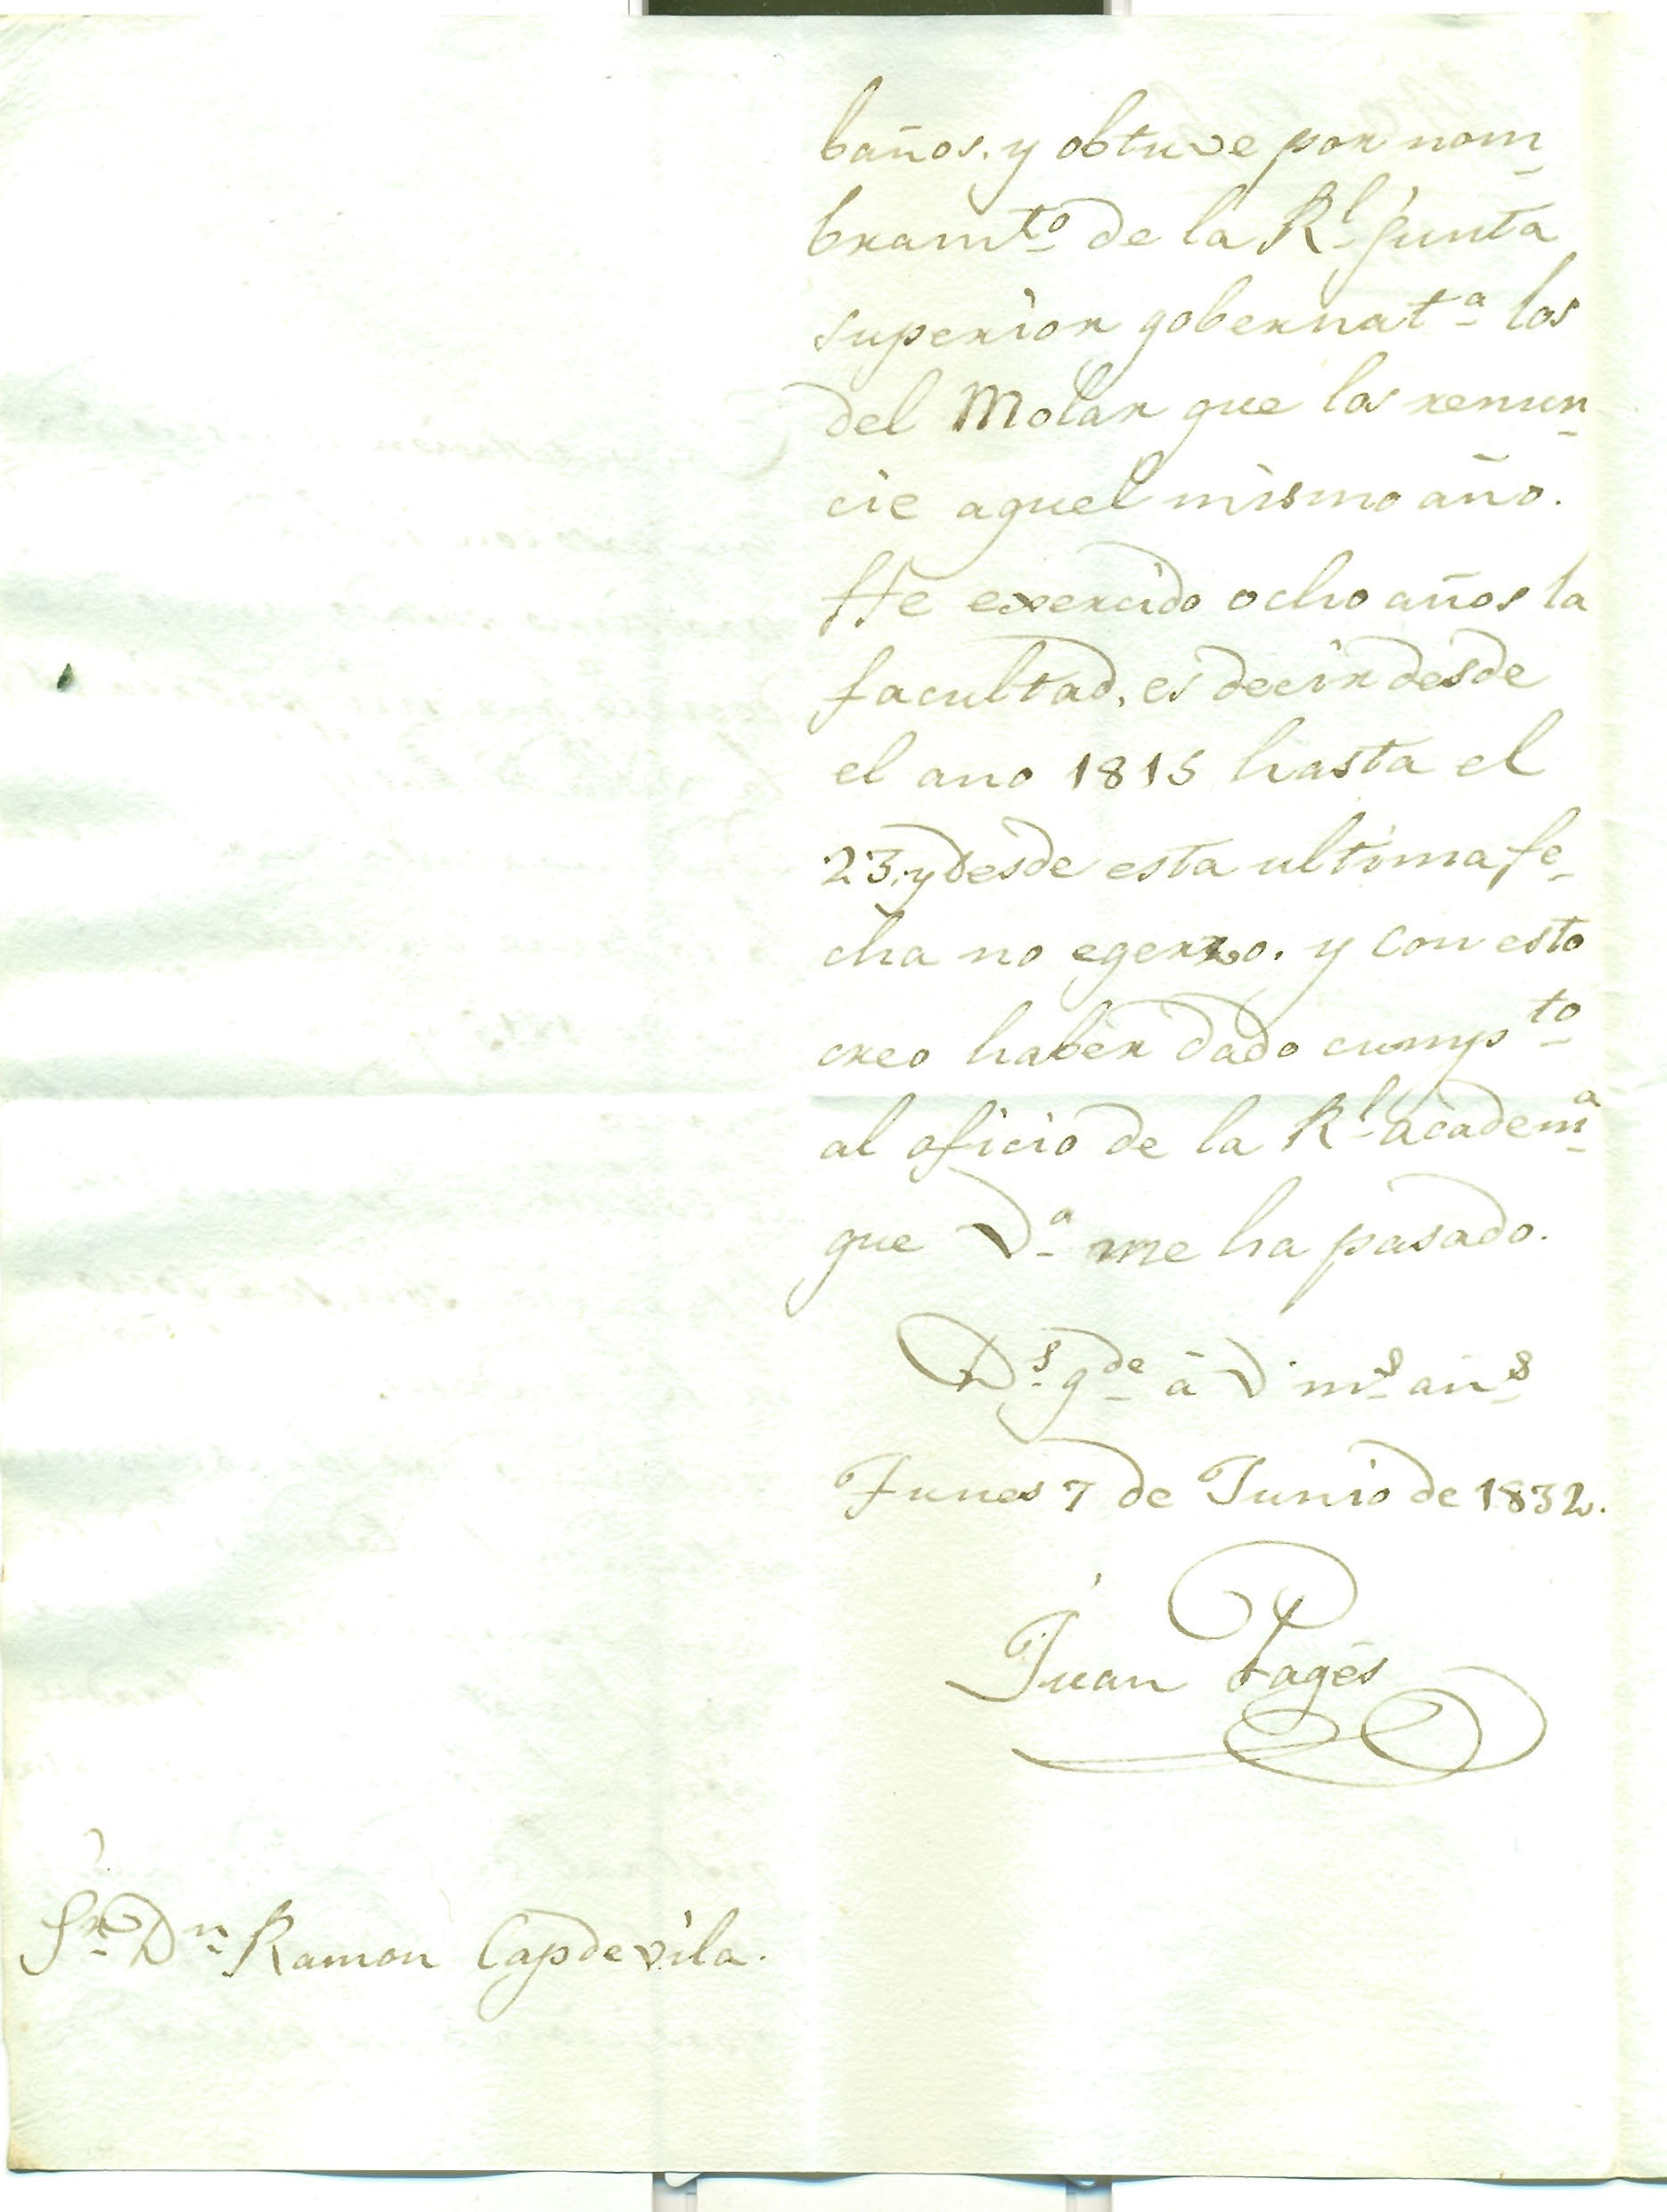 baños. y obtuve por nom-
bramto de la Rl junta
superior gobernatª los
del Molar que los renun-
cie aquel mismo año.
He exercido ocho años la
facultad, es decir desde
el ano 1815 hasta el
23, y desde esta ultima fe-
cha no egerzo. y con esto
creo haber dado cumpto
al oficio de la Rl academª
que Vª me ha pasado.
Ds gde à V ms añs
Funes 7 de Junio de 1832.
Juan Pagés
Sr Dn Ramon Capdevila.